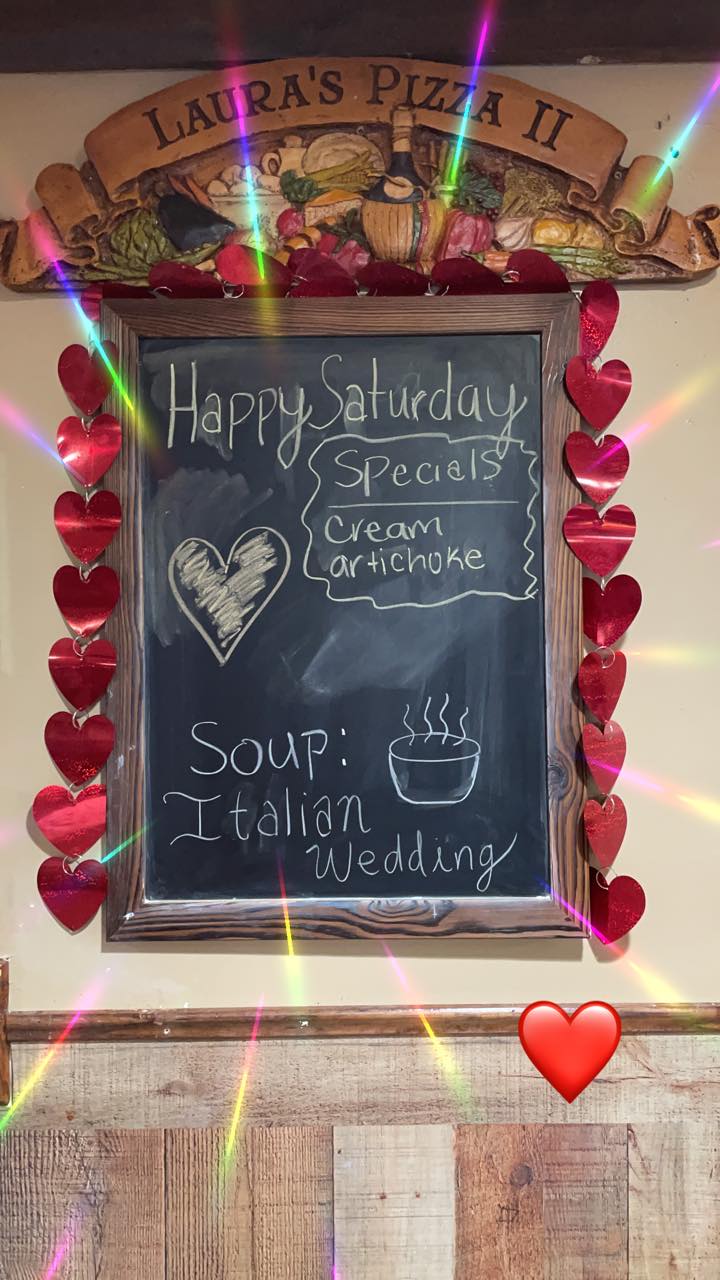 LAURA'S PIZZA II
Happy Saturday
Specials
Cream
artichoke
Soup:
Italian
Wedding